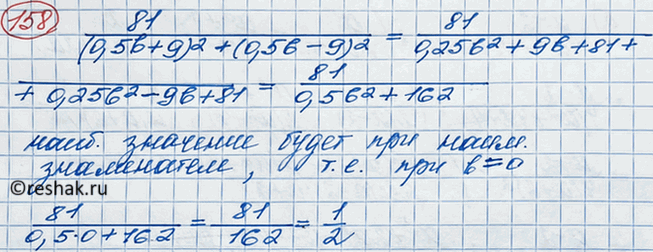 158.
81/((0,5b+9)² + (0,5b-9)²) = 81/(0,25b² + 9b + 81 +
+ 0,25b² - 9b + 81) = 81/(0,5b² + 162)
наиб. значение будет при наим.
знаменателе, т.е. при b = 0
©reshak.ru
81/(0,5·0 + 162) = 81/162 = 1/2